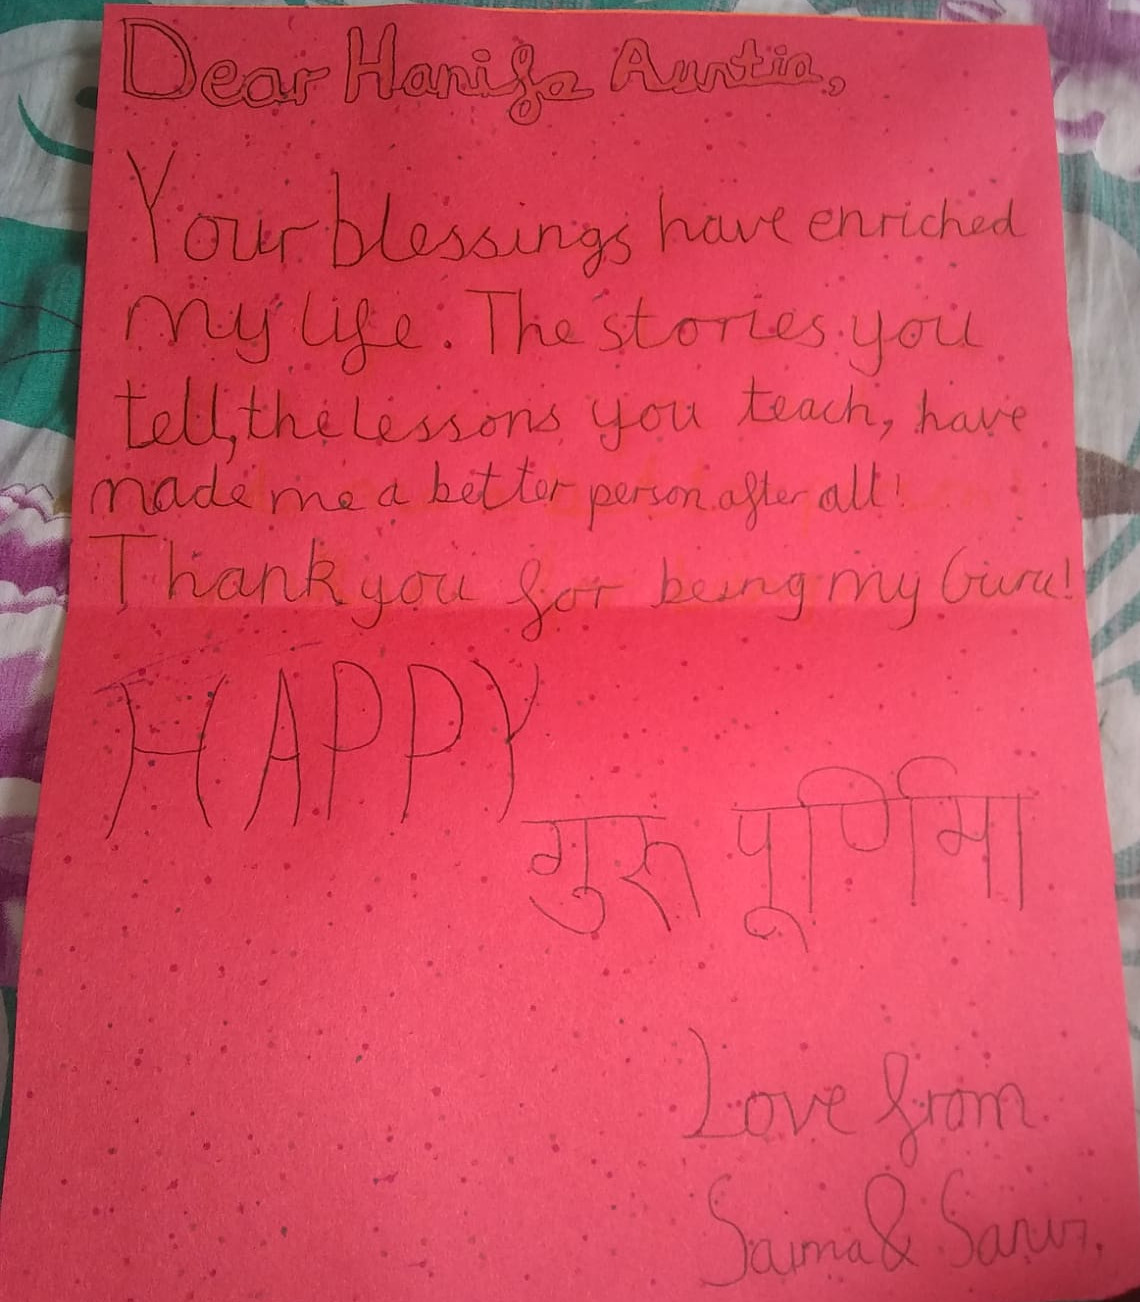 Dear Hanifa Auntia,
Your blessings have enriched
my life. The stories you
tell, the lessons you teach, have
made me a better person after all!
Thank you for being my Guru!
HAPPY
गुरू पूर्णिमा
Love from
Saima &